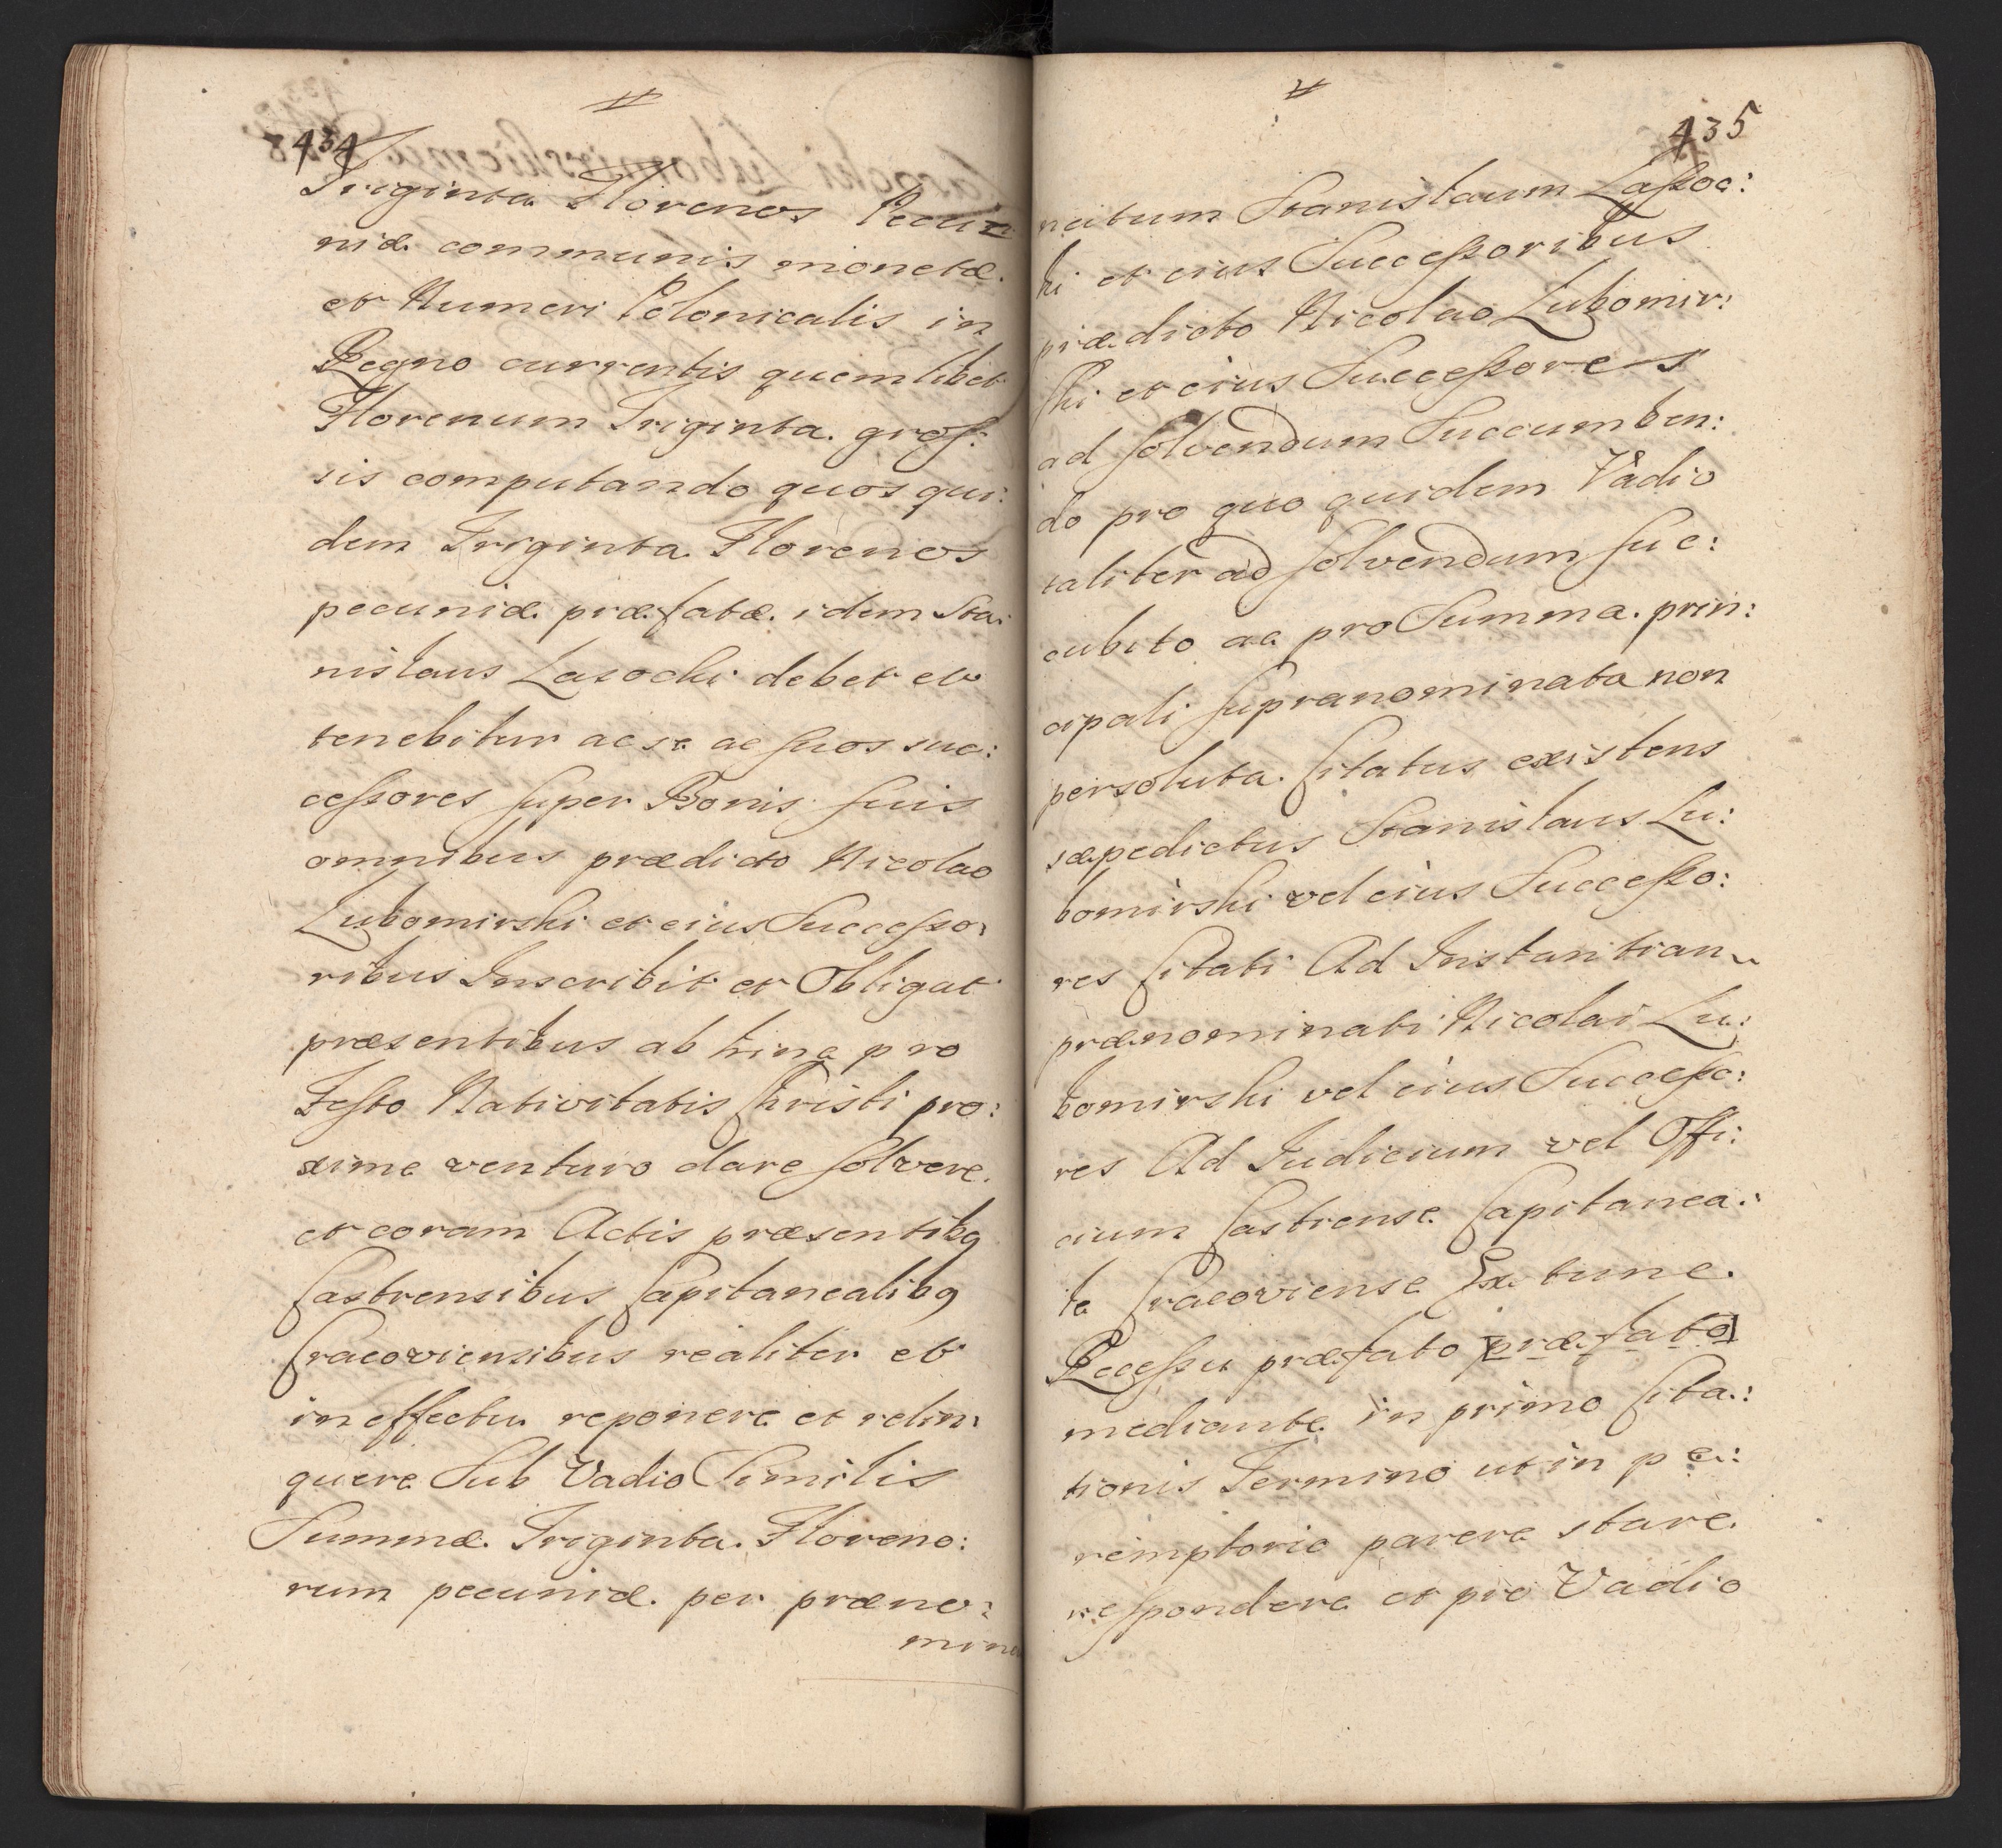 434
Triginta Florenos Pecun
niæ communis monetæ
et Numeri Polonicalis in
Regno currentis quemlibet
Florenum Triginta gros:
sis computando quos qui:
dem Triginta Florenos
pecuniæ præfatæ idem Sta:
nislaus Lasocki debet et
tenebitur ac se ac suos suc:
cessores super Bonis suis
omnibus prædicto Nicolao
Lubomirski et eius Successo:
ribus Inscribit et Obligat
præsentibus ab hinc pro
Festo Nativitatis Christi pro:
xime venturo dare solvere
et coram Actis præsentibq
Castrensibus Capitanealibq
Cracoviensibus realiter et
in effectu reponere et relin:
quere Sub Vadio Similis
Summæ Triginta Floreno:
rum pecuniæ per præno:
mina
435
natum Stanislaum Lassoc:
ki et eius Successoribus
prædicto Nicolao Lubomir:
ski et eius Successores
ad solvendum Succumben:
do pro quo quidem Vadio
taliter ad solvendum suc:
cubito ac pro Summa prin:
cipali supranominata non
persoluta Citatus existens
sæpedictus Stanislaus Lu:
bomirski vel eius Successo:
res Citati Ad Instantian
prænominati Nicolai Lu:
bomirski vel eius Successo:
res Ad Judicium vel Offi:
cium Castrense Capitanea:
le Cracoviense Ex tunc
Recessu præfato [præfato]
mediante in primo Cita:
tionis Termino ut in pe:
remptorio parere stare
respondere et pro Vadio